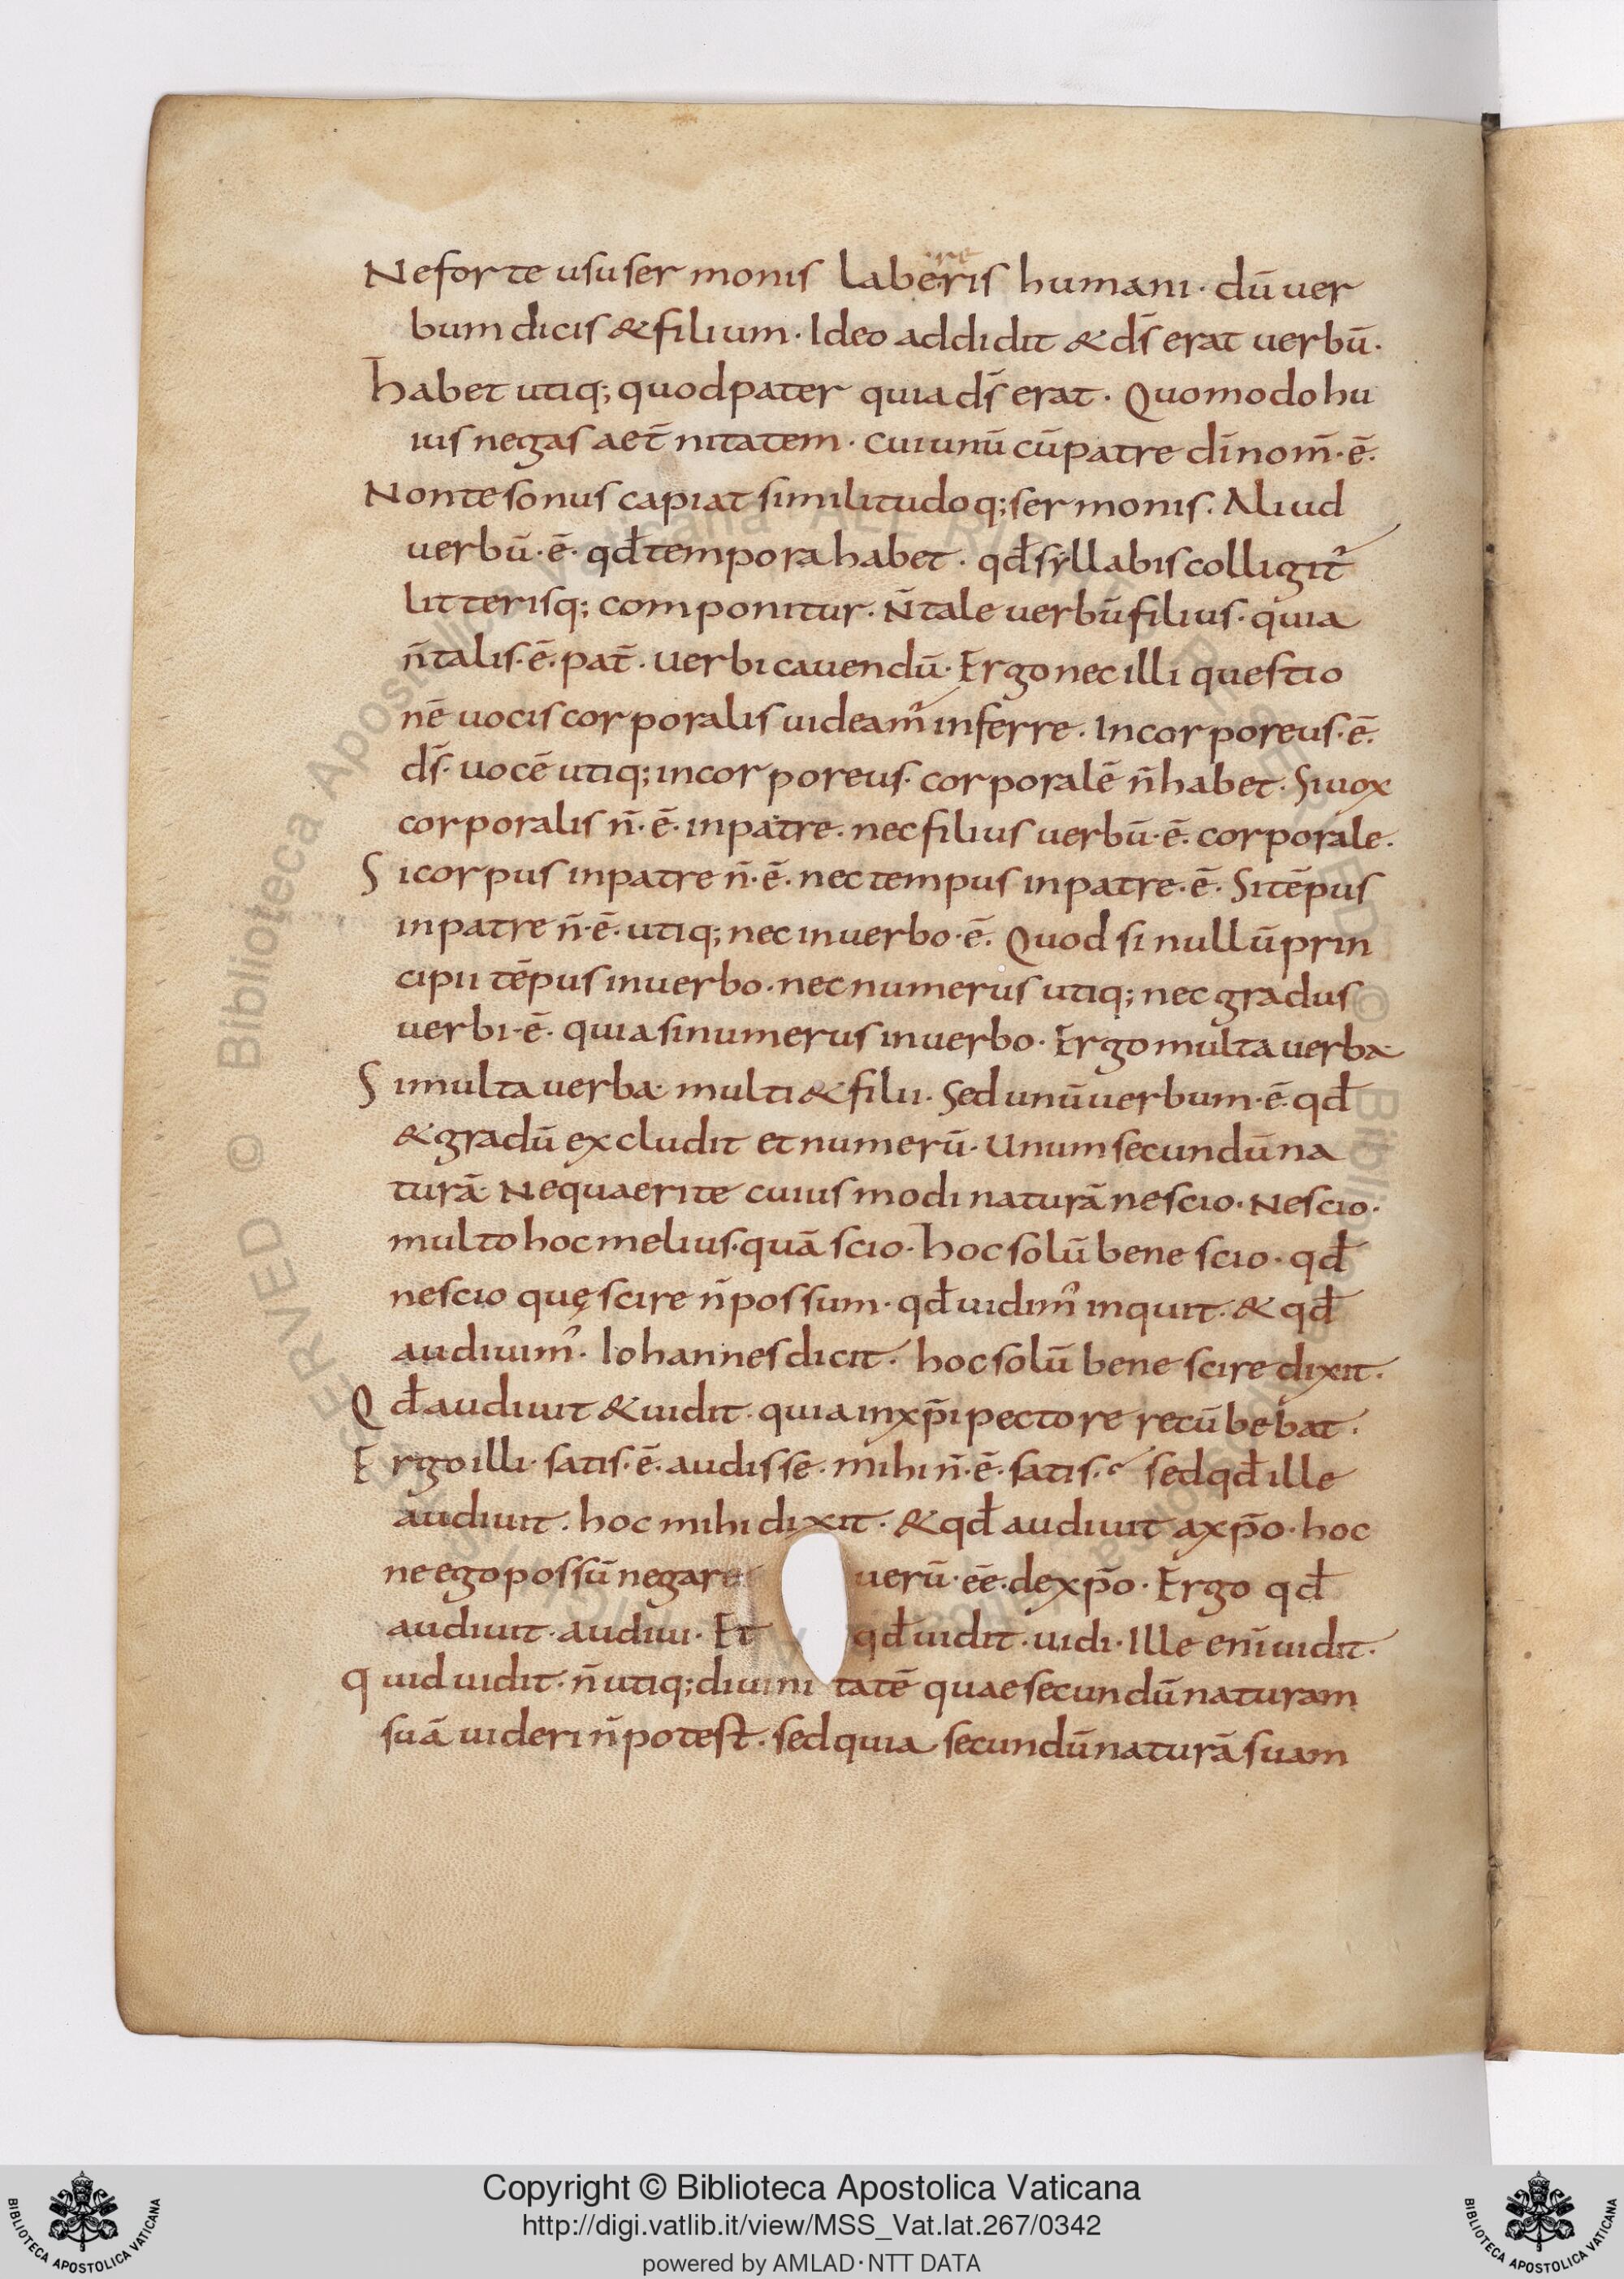 Neforte usu sermonis laberis humani · dū uer
re
bum dicis & filium · Ideo addidit & ds̄ erat uerbū ·
habet utiq; quod pater quia ds̄ erat · Quomodo hu
ius negas aet̄nitatem · cui unū cū patre dī nom̄ · ē ·
Non te sonus capiat similitudoq; sermonis · Aliud
uerbū · ē · qđ tempora habet · qđ syllabis colligit᷑
litterisq; componitur · n̄ tale uerbū filius · quia
n̄ talis · ē · pat̄ · uerbi cauendū · Ergo nec illi questio
nē uocis corporalis uideam᷑ inferre · Incorporeus · ē ·
ds̄ · uocē utiq; incorporeus · corporalē n̄ habet · Si uox
corporalis n̄ · ē · in patre · nec filius uerbū · ē · corporale ·
Si corpus in patre n̄ · ē · nec tempus in patre · ē · Si tēpus
in patre n̄ · ē · utiq; nec in uerbo · ē · Quod si nullū prin
cipii tēpus in uerbo · nec numerus utiq; nec gradus
uerbi · ē · quia si numerus in uerbo · Ergo multa uerba
Si multa uerba · multi & filii · Sed unū uerbum · ē · qđ
& gradū excludit et numerū · Unum secundū na
turā · Ne quaerite cuiusmodi naturā nescio · Nescio ·
multo hoc melius · quā scio · hoc solū bene scio · qđ
nescio quę scire n̄ possum · qđ uidim᷒ inquit · & qđ
audiuim᷒ · Iohannes dicit · hoc solū bene scire dixit ·
Qđ audiuit & uidit · quia in xp̄i pectore recūbebat ·
Ergo illi · satis · ē · audisse · mihi n̄ · ē · satis · sed qđ ille
audiuit · hoc mihi dixit · & qđ audiuit a xp̄o · hoc
ne ego possū negare uerū · ēē · de xp̄o · Ergo qđ
audiuit · audiui · Et qđ uidit · uidi · Ille enī uidit ·
Quid uidit · n̄ utiq; diuinitatē quae secundū naturam
suā uideri n̄ potest · sed quia secundū naturā suam
© Biblioteca Apostolica Vaticana · ALL RIGHTS RESERVED
Copyright © Biblioteca Apostolica Vaticana
http://digi.vatlib.it/view/MSS_Vat.lat.267/0342
powered by AMLAD·NTT DATA
BIBLIOTECA APOSTOLICA VATICANA
BIBLIOTECA APOSTOLICA VATICANA